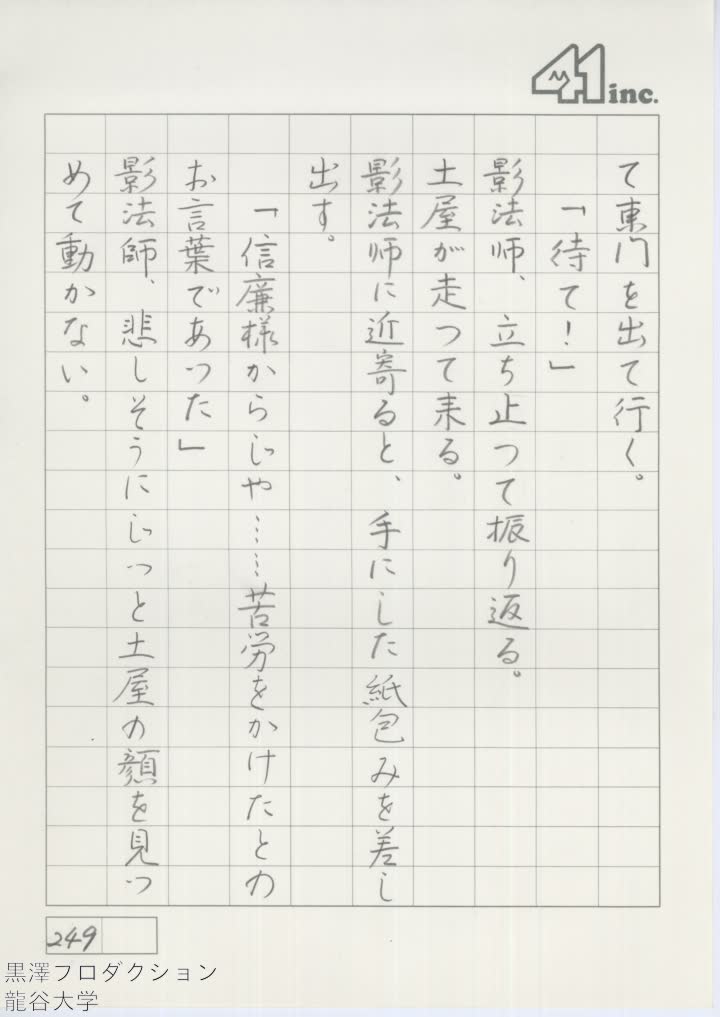 41 inc.
て東門を出て行く。
「待て!」
影法師、立ち止つて振り返る。
土屋が走つて来る。
影法師に近寄ると、手にした紙包みを差し
出す。
「信廉様からじや……苦労をかけたとの
お言葉であつた」
影法師、悲しそうにじつと土屋の顔を見つ
めて動かない。
249
黒澤プロダクション
龍谷大学